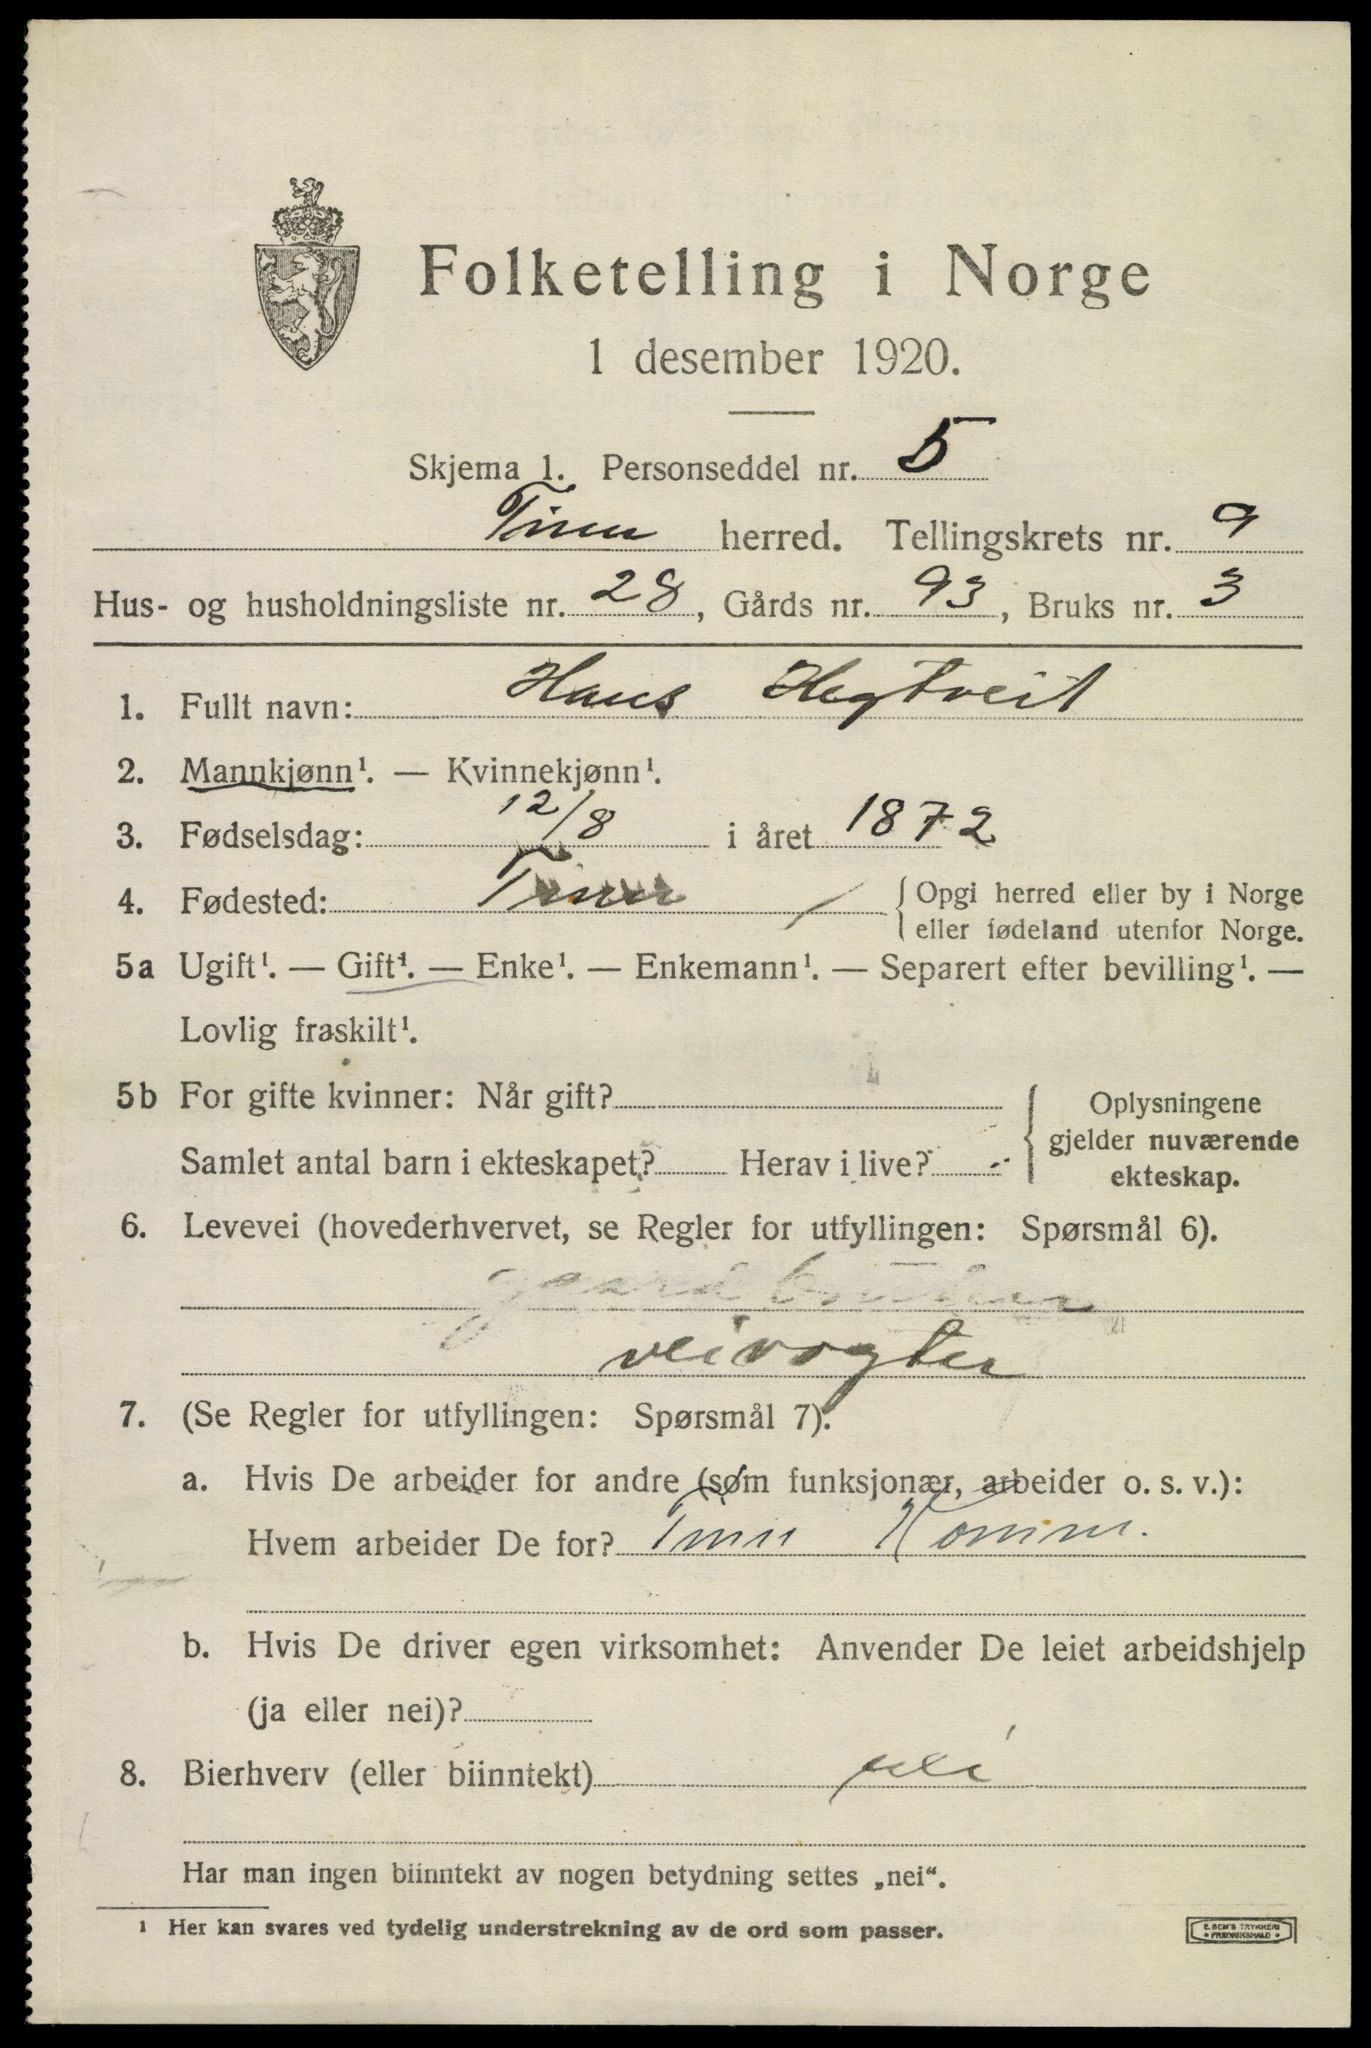 Folketelling i Norge
1 desember 1920.
Skjema 1. Personseddel nr. 5
Tinn herred. Tellingskrets nr. 9
Hus- og husholdningsliste nr. 28, Gårds nr. 93, Bruks nr. 3
1. Fullt navn: Hans Hegtveit
2. Mannkjønn¹. — Kvinnekjønn¹.
3. Fødselsdag: 12/8 i året 1872
4. Fødested: Tinn / { Opgi herred eller by i Norge
eller fødeland utenfor Norge.
5a Ugift¹. — Gift¹. — Enke¹. — Enkemann¹. — Separert efter bevilling¹. —
Lovlig fraskilt¹.
5b For gifte kvinner: Når gift?
Samlet antal barn i ekteskapet? Herav i live?
Oplysningene
gjelder nuværende
ekteskap.
6. Levevei (hovederhvervet, se Regler for utfyllingen: Spørsmål 6).
gaardbruker
veivogter
7. (Se Regler for utfyllingen: Spørsmål 7).
a. Hvis De arbeider for andre (som funksjonær, arbeider o. s. v.):
Hvem arbeider De for? Tinn Komm.
b. Hvis De driver egen virksomhet: Anvender De leiet arbeidshjelp
(ja eller nei)?
8. Bierhverv (eller biinntekt) nei
Har man ingen biinntekt av nogen betydning settes „nei“.
¹ Her kan svares ved tydelig understrekning av de ord som passer.
E. SEM'S TRYKKERI
• FREDRIKSHALD •